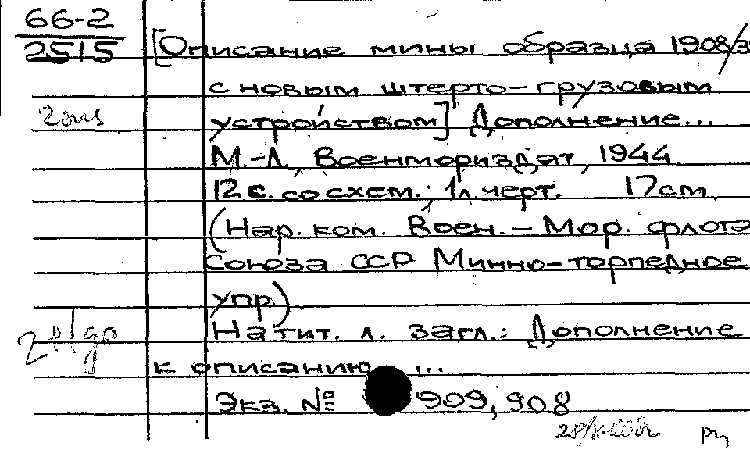 66-2
2515
[Описание мины образца 1908/3
с новым штерто-грузовым
устройством] Дополнение...
М.-Л., Военмориздат, 1944
12 с. со схем.; 1 л. черт. 17 см
(Нар. ком. Воен.-Мор. флота
Союза ССР Минно-торпедное
упр.)
На тит. л. загл.: Дополнение
к описанию ...
Экз. № 909, 908